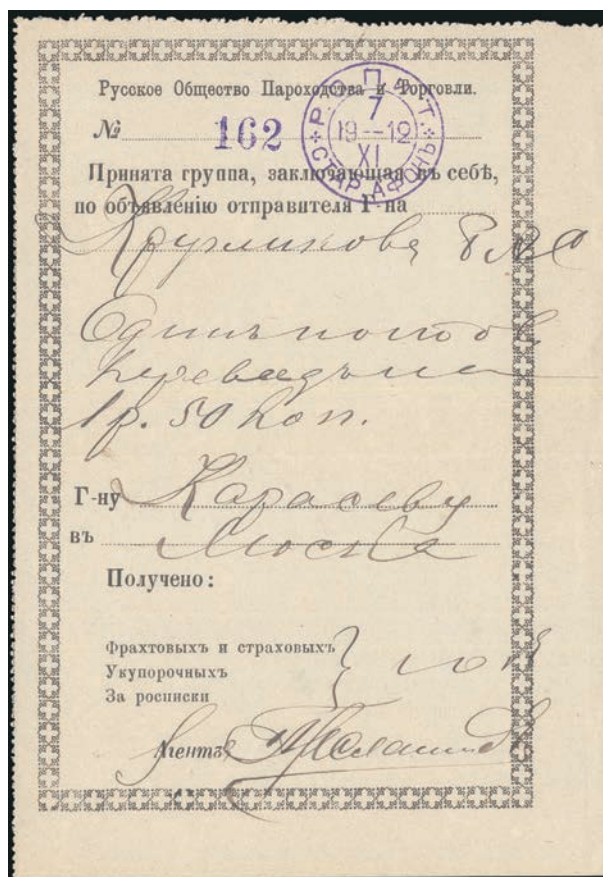 Русское Общество Пароходства и Торговли.
№ 162
Р.О.П. и Т.
7
19--12
XI
СТАР. АФОНЪ
Принята группа, заключающая въ себѣ,
по объявленію отправителя Г-на
Кругликова
Одинъ почтов.
переводъ на
1р. 50 коп.
Г-ну Карасеву
въ Москва
Получено:
Фрахтовыхъ и страховыхъ
Укупорочныхъ
За росписки
Агентъ